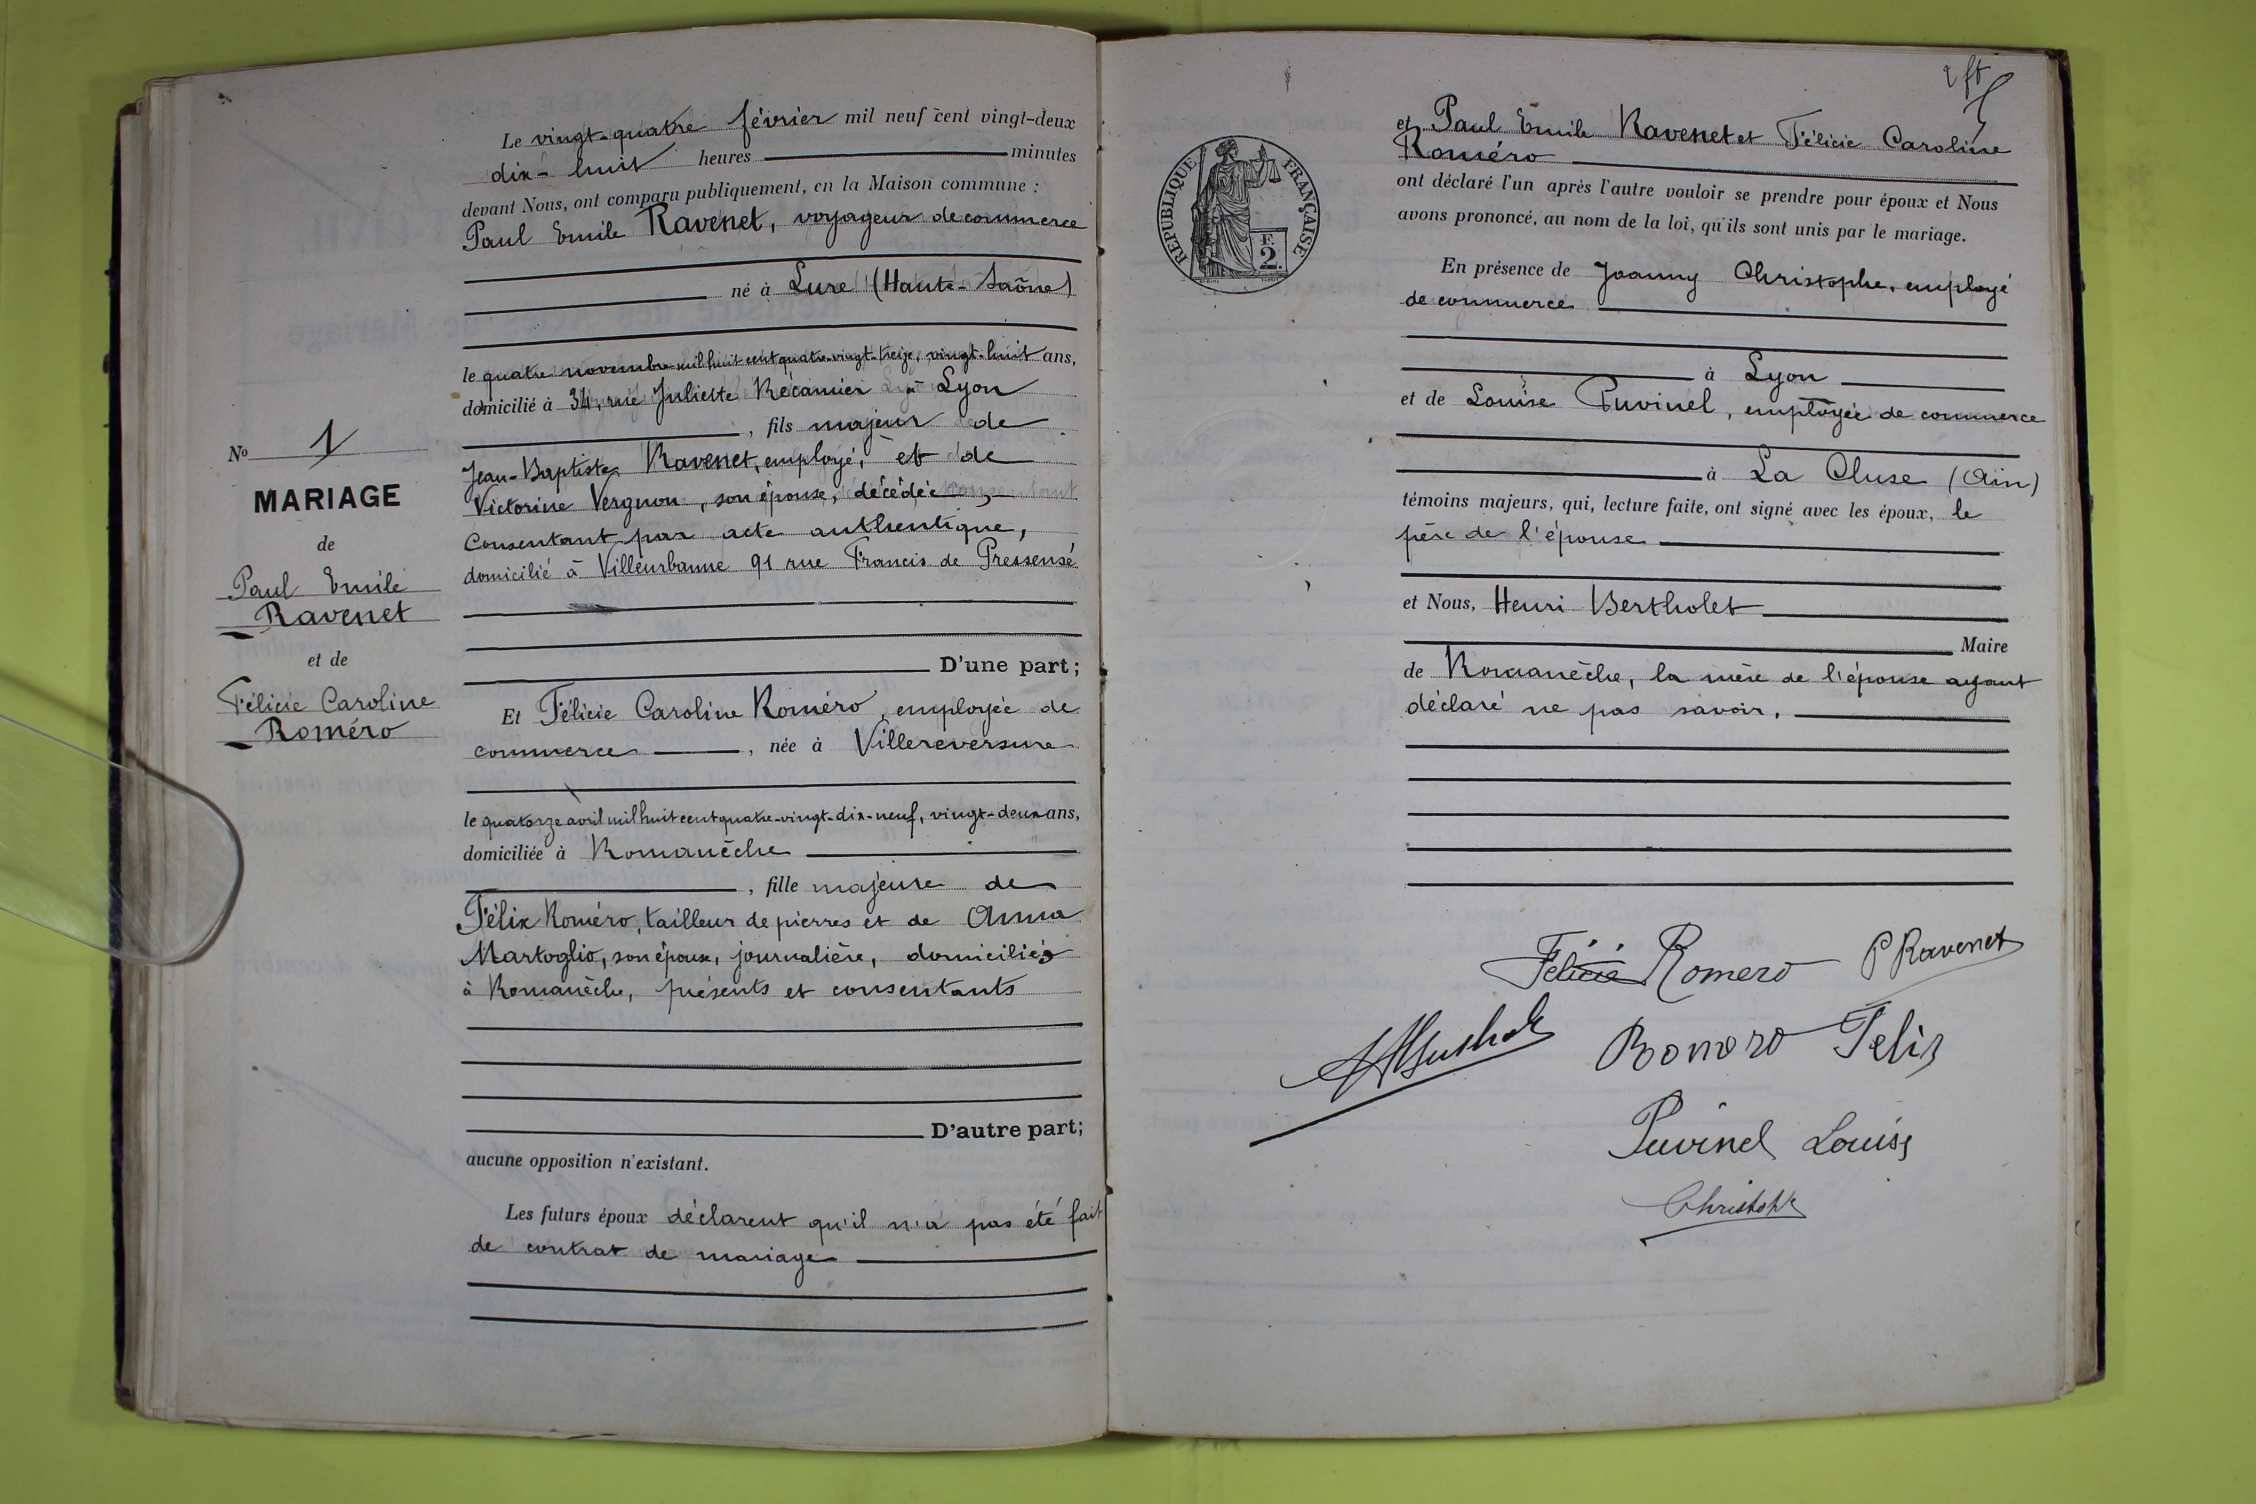 Le vingt-quatre février mil neuf cent vingt-deux
dix-huit heures minutes
devant Nous, ont comparu publiquement, en la Maison commune :
Paul Emile Ravenet, voyageur de commerce
né à Lure (Haute-Saône)
le quatre novembre mil huit cent quatre-vingt-treize, vingt-huit ans,
domicilié à 34, rue Juliette Récamier à Lyon
, fils majeur de
Jean-Baptiste Ravenet, employé, et de
Victorine Vergnon, son épouse, décédée,
consentant par acte authentique,
domicilié à Villeurbanne 91 rue Francis de Pressensé
D'une part;
Et Félicie Caroline Roméro, employée de
commerce , née à Villereversure
le quatorze avril mil huit cent quatre-vingt-dix-neuf, vingt-deux ans,
domiciliée à Romanèche
, fille majeure de
Félix Roméro, tailleur de pierres et de Anna
Martoglio, son épouse, journalière, domiciliés
à Romanèche, présents et consentants
D'autre part;
aucune opposition n'existant.
Les futurs époux déclarent qu'il n'a pas été fait
de contrat de mariage
No 1
MARIAGE
de
Paul Emile
Ravenet
et de
Félicie Caroline
Roméro
RÉPUBLIQUE FRANÇAISE
F.
2.
et Paul Emile Ravenet et Félicie Caroline
Roméro
ont déclaré l'un après l'autre vouloir se prendre pour époux et Nous
avons prononcé, au nom de la loi, qu'ils sont unis par le mariage.
En présence de Joanny Christophe, employé
de commerce
à Lyon
et de Louise Puvinel, employée de commerce
à La Cluse (Ain)
témoins majeurs, qui, lecture faite, ont signé avec les époux, le
père de l'épouse
et Nous, Henri Bertholet
Maire
de Romanèche, la mère de l'épouse ayant
déclaré ne pas savoir.
Félicie Romero P Ravenet
Romero Felix
Puvinel Louise
Christophe